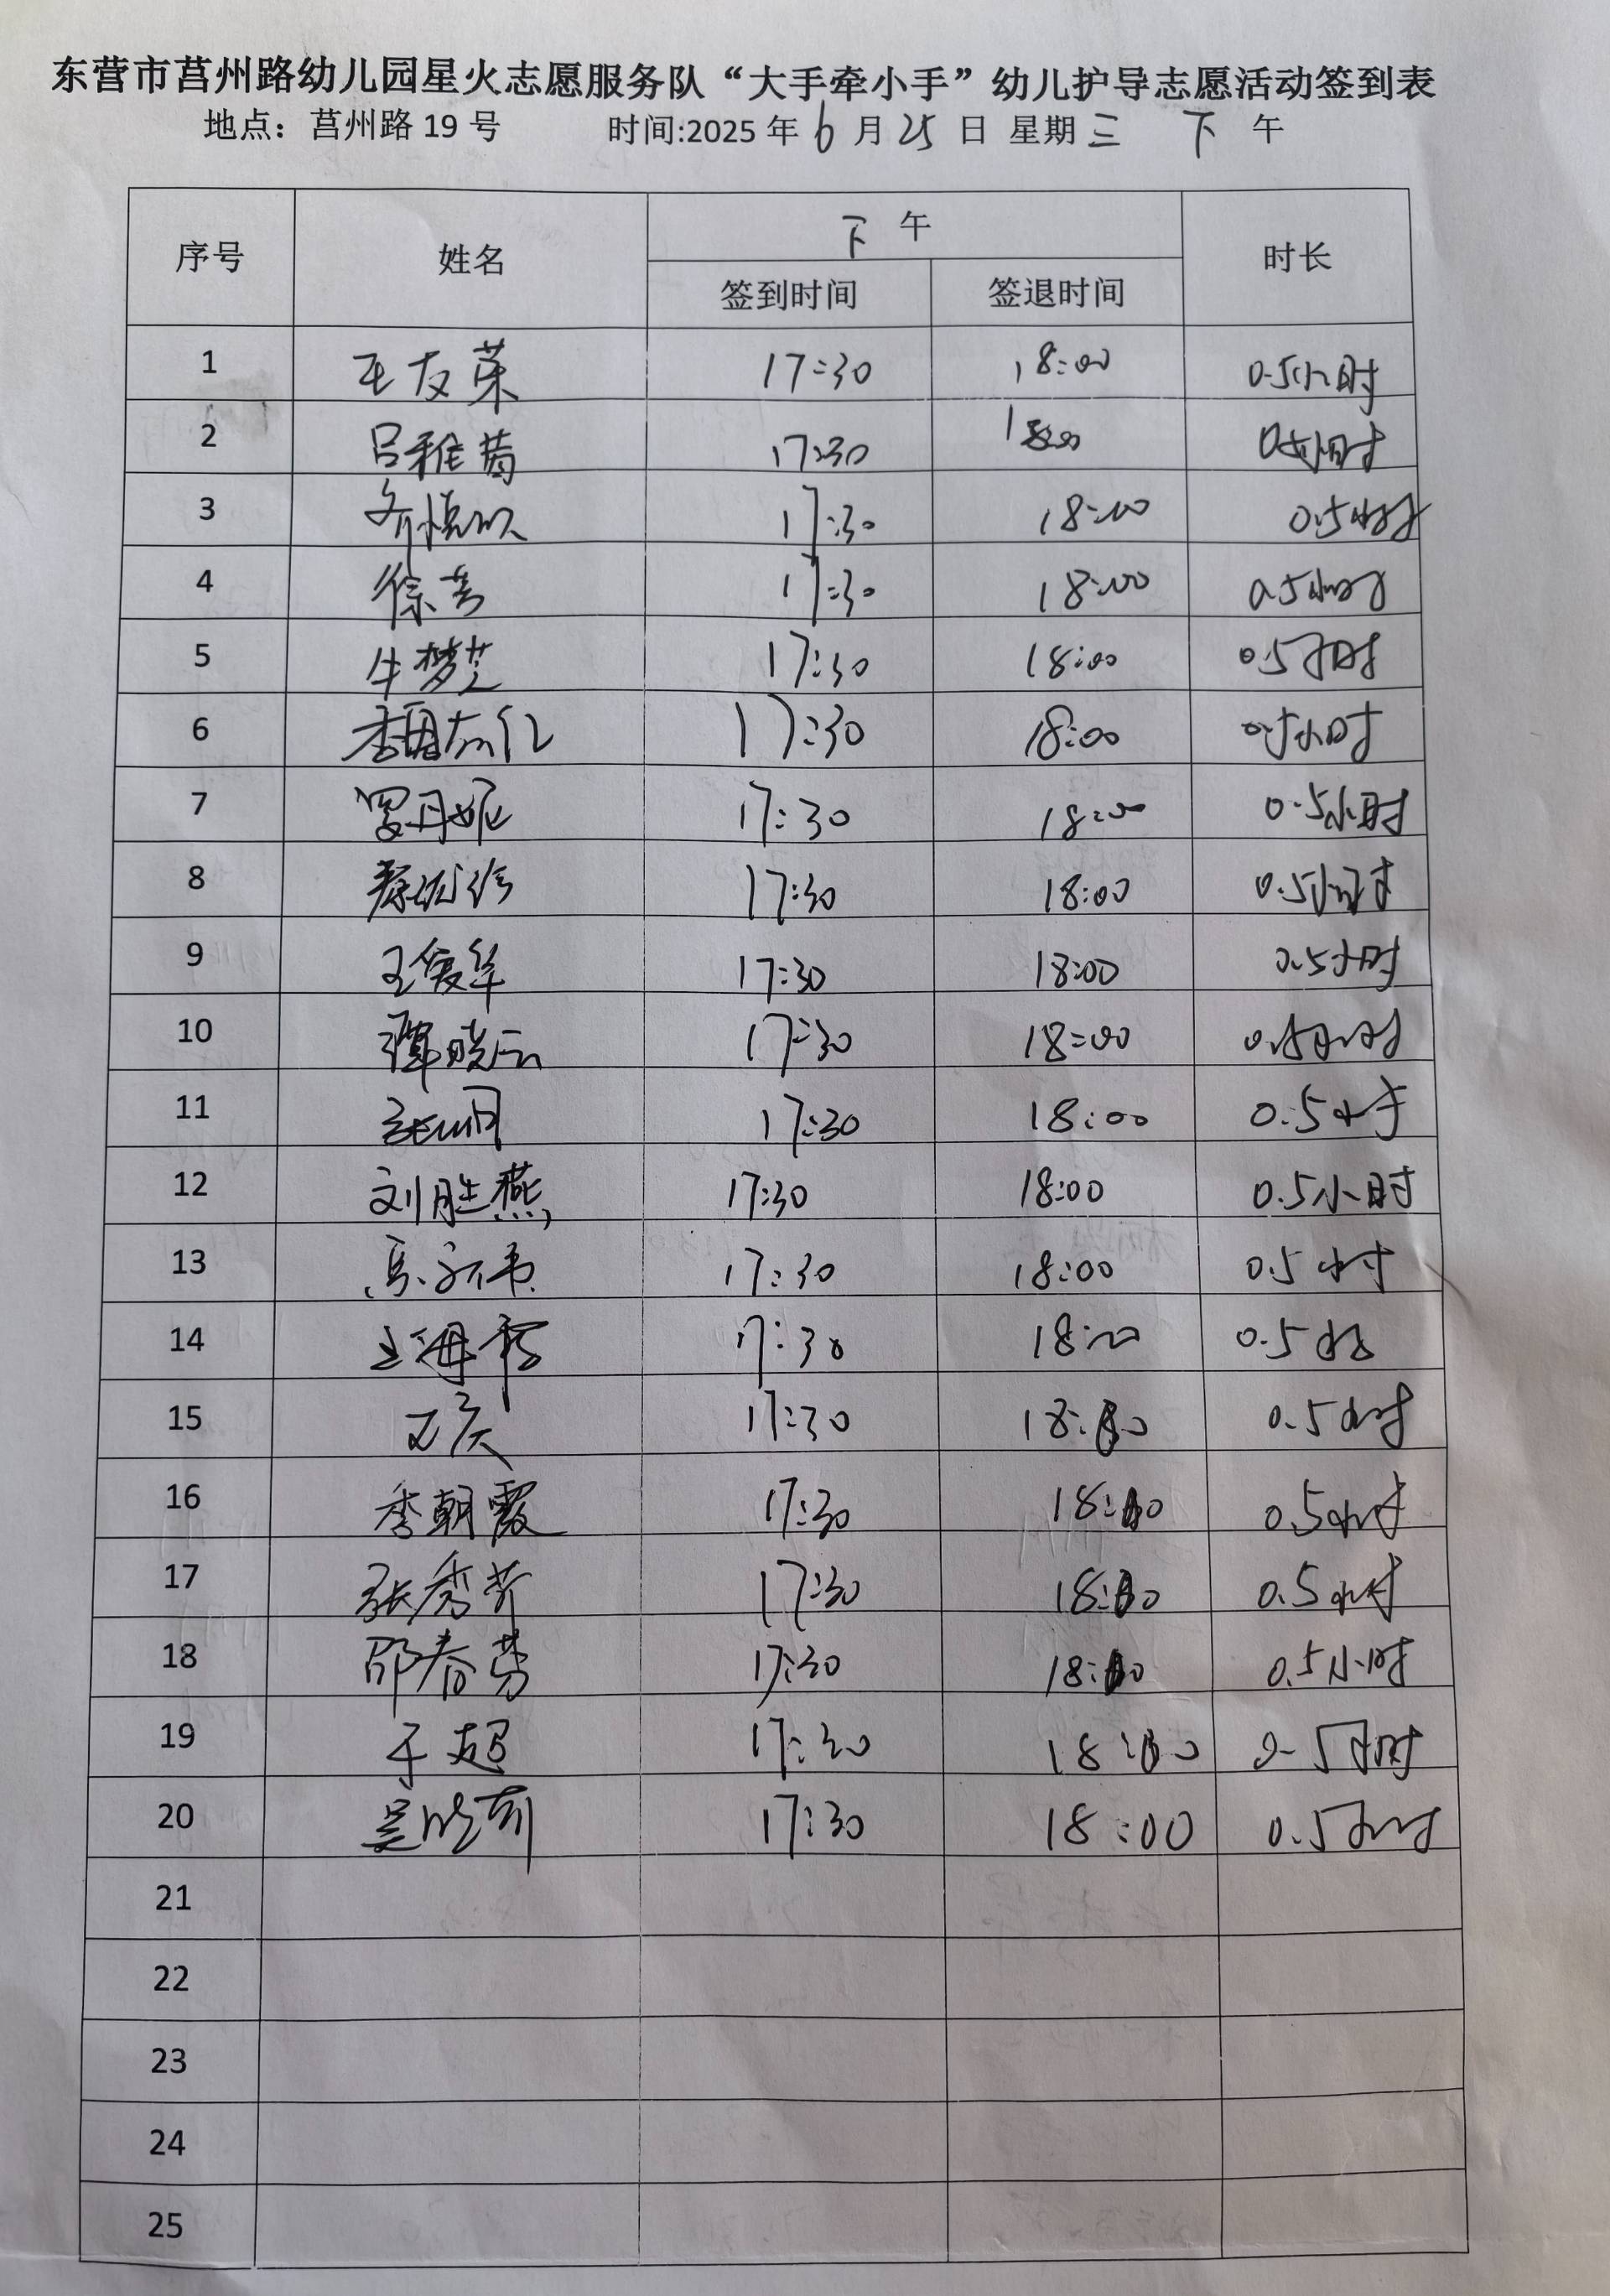 东营市莒州路幼儿园星火志愿服务队“大手牵小手”幼儿护导志愿活动签到表
地点：莒州路 19 号 时间:2025 年 6 月 25 日 星期三 下 午
序号 姓名 下 午 时长
签到时间 签退时间
1 王友荣 17:30 18:00 0.5小时
2 吕雅茜 17:30 18:00 0.5小时
3 17:30 18:00 0.5小时
4 徐芳 17:30 18:00 0.5小时
5 牛梦芝 17:30 18:00 0.5小时
6 17:30 18:00 0.5小时
7 罗丹妮 17:30 18:00 0.5小时
8 17:30 18:00 0.5小时
9 17:30 18:00 0.5小时
10 谭晓云 17:30 18:00 0.5小时
11 17:30 18:00 0.5小时
12 刘胜燕 17:30 18:00 0.5小时
13 17:30 18:00 0.5小时
14 17:30 18:00 0.5小时
15 17:30 18:00 0.5小时
16 季朝霞 17:30 18:00 0.5小时
17 张秀芹 17:30 18:00 0.5小时
18 邵春芳 17:30 18:00 0.5小时
19 于超 17:30 18:00 0.5小时
20 17:30 18:00 0.5小时
21
22
23
24
25